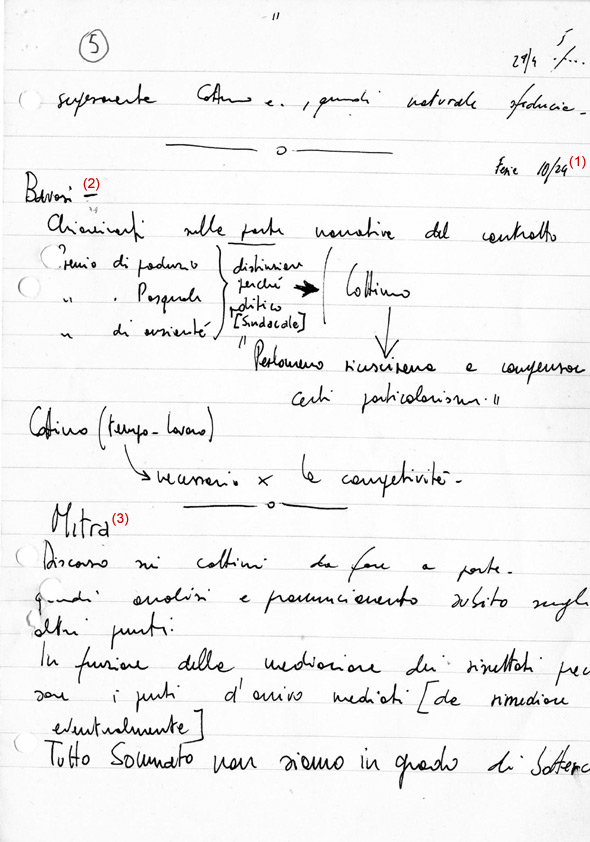 "
5
5
29/4
Cottimo e. , quindi naturale sfiducia -
Ferie 10/24 (1)
Bavosi (2)
Chiarimenti sulla parte normativa del contratto
Premio di
" . Pasquale
" di anzianità
distinzione
perché
politico
[Sindacale]
Cottimo
" Perlomeno a compensare
certi particolarismi. "
Cottimo (tempo - lavoro)
necessario x la competività -
Mitra (3)
Discorso sui cottimi da fare a parte -
quindi analisi e pronunciamento subito sugli
altri punti:
In funzione della mediazione dei risultati
i punti d'arrivo mediati [da rimediare
eventualmente]
Tutto Sommato non siamo in grado di